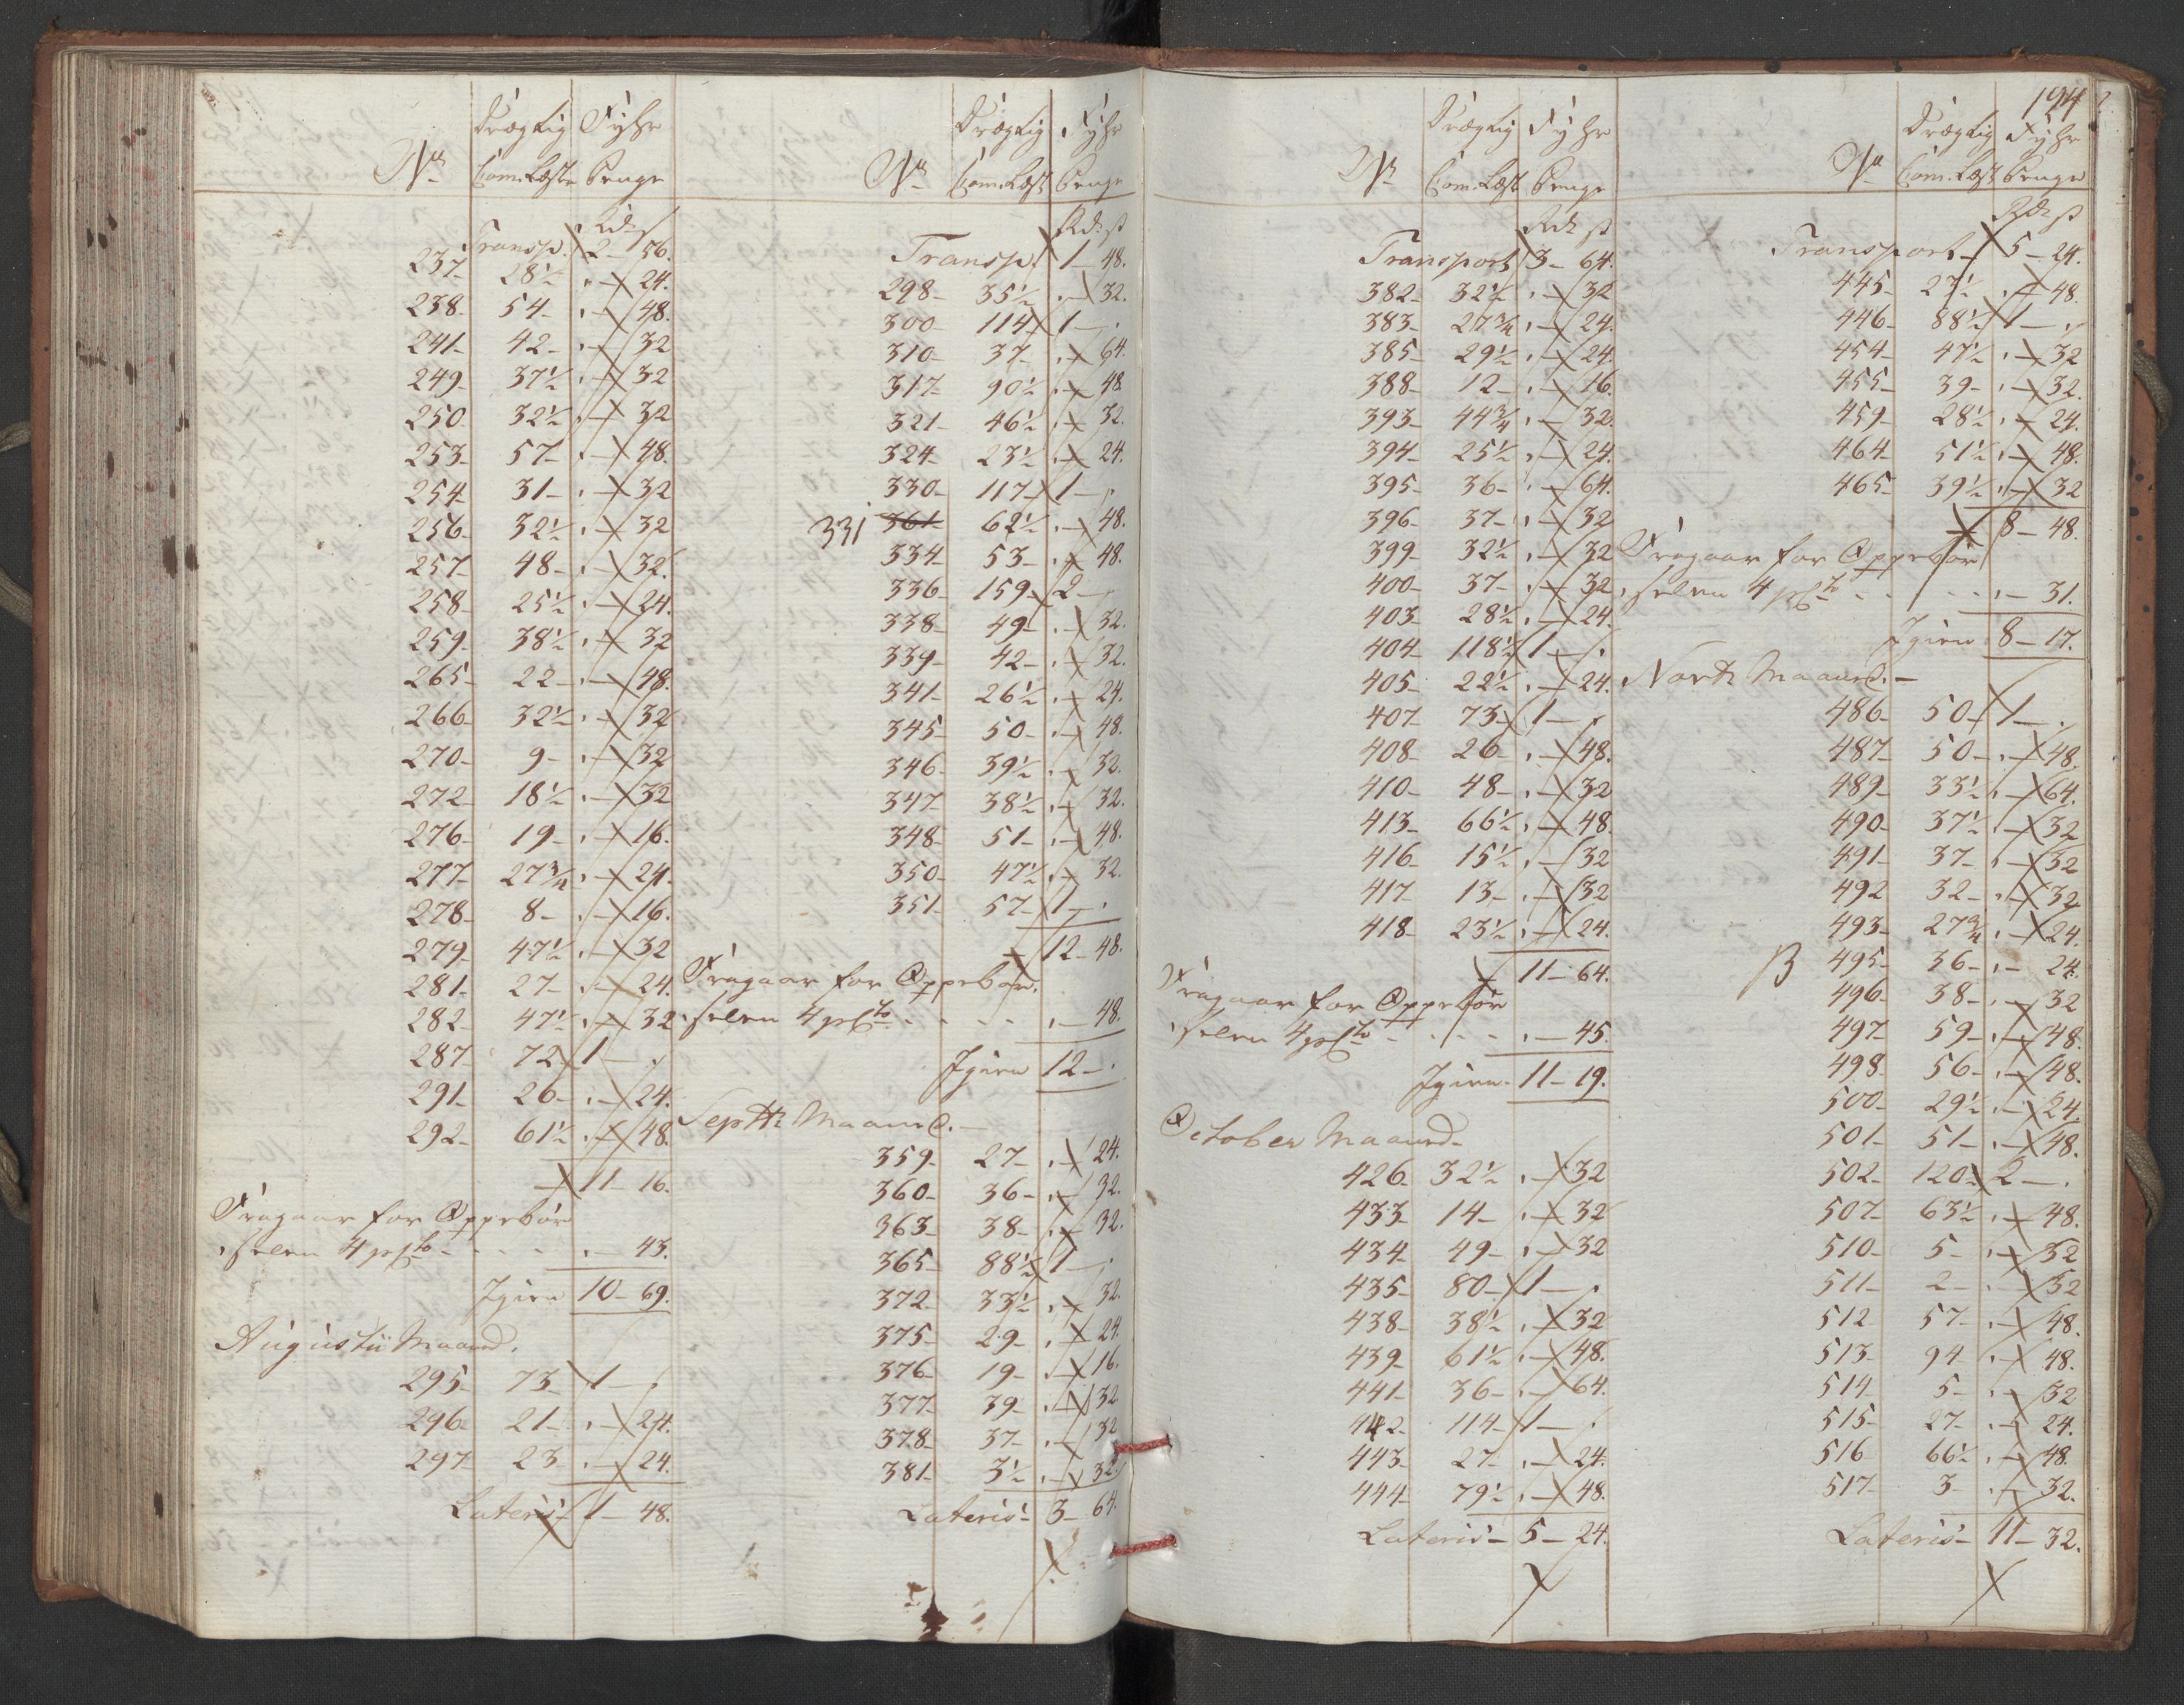 Drægtig Fyhr
No Com. Læste Penge
Rdr ß
Transp. 2 - 56.
237 - 28½ „ - 24.
238 - 54 - „ - 48.
241 - 42 - „ - 32
249 - 37½ „ - 32
250 - 32½ „ - 32
253 - 57 - „ - 48.
254 - 31 - „ - 32
256 - 32½ „ - 32
257 - 48 - „ - 32.
258 - 25½ „ - 24.
259 - 38½ „ - 32
265 - 22 - „ - 48.
266 - 32½ „ - 32
270 - 9 - „ - 32
272 - 18½ „ - 32
276 - 19 - „ - 16.
277 - 27¾ „ - 24.
278 - 8 - „ - 16.
279 - 47½ „ - 32
281 - 27 - „ - 24.
282 - 47½ „ - 32
287 - 72 - 1 - „
291 - 26 - „ - 24.
292 - 61½ „ - 48.
11 - 16.
Fragaar for Oppebør
selen 4 pCto - - - „ - 43.
Igien 10 - 69.
Augustii Maaned.
295 - 73 - 1 - „
296 - 21 - „ - 24.
297 - 23 - „ - 24.
Lateris - 1 - 48.
Drægtig Fyhr
No Com. Læst Penge
Rdr ß
Transp. 1 - 48.
298 - 35½ „ - 32.
300 - 114 - 1 - „
310 - 37 - „ - 64.
317 - 90½ „ - 48
321 - 46½ „ - 32.
324 - 23½ „ - 24.
330 - 117 - 1 - „
331 361 62½ „ - 48.
334 - 53 - „ - 48.
336 - 159 - 2 - „
338 - 49 - „ - 32.
339 - 42 - „ - 32.
341 - 26½ „ - 24.
345 - 50 - „ - 48.
346 - 39½ „ - 32.
347 38½ „ - 32.
348 - 51 - „ - 48.
350 - 47½ „ - 32.
351 - 57 - 1 - „
12 - 48.
Fragaar for Oppebør
selen 4 pCto - - - - „ - 48.
Igien 12 - „
Septbr Maaned. -
359 - 27 - „ - 24.
360 - 36 - „ - 32.
363 - 38 - „ - 32.
365 - 88½ 1 - „
372 - 33½ „ - 32.
375 - 29 - „ - 24.
376 - 19 - „ - 16.
377 - 39 - „ - 32
378 - 37 - „ - 32
381 - 3½ „ - 32.
Lateris - 3 - 64.
Drægtig Fyhr
No Com. Læst Penge
Rdr ß
Transport 3 - 64.
382 - 32½ „ - 32
383 - 27¾ „ - 24.
385 - 29½ „ - 24.
388 - 12 - „ - 16.
393 - 44¾ „ - 32.
394 - 25½ „ - 24.
395 - 36 - „ - 64.
396 - 37 - „ - 32
399 - 32½ „ - 32
400 - 37 - „ - 32
403 - 28½ „ - 24.
404 - 118½ 1 - „
405 - 22½ „ - 24.
407 - 73 - 1 - „
408 - 26 - „ - 48.
410 - 48 - „ - 32
413 - 66½ „ - 48.
416 - 15½ „ - 32
417 - 13 - „ - 32
418 - 23½ „ - 24.
11 - 64.
Fragaar for Oppebør
selen 4 pCto - - - - „ - 45.
Igien - 11 - 19.
October Maaned -
426 - 32½ „ - 32
433 - 14 - „ - 32
434 - 49 - „ - 32
435 - 80 - 1 - „
438 - 38½ „ - 32
439 - 61½ „ - 48.
441 - 36 - „ - 64.
442 - 114 - 1 - „
443 - 27 - „ - 24.
444 - 79½ „ - 48.
Lateris - 5 - 24.
194
Drægtig Fyhr
No Com. Læst Penge
Rdr ß
Transport - 5 - 24.
445 - 27½ „ - 48.
446 - 88½ 1 - „
454 - 47½ „ - 32
455 - 39 - „ - 32.
459 - 28½ „ - 24.
464 51½ „ - 48.
465 - 39½ „ - 32
8 - 48.
Fragaar for Oppebør
selen 4 pCto - - - - „ - 31.
Igien 8 - 17.
Novbr Maaned. -
486 - 50 - 1 - „
487 - 50 - „ - 48.
489 - 33½ „ - 64.
490 - 37½ „ - 32
491 - 37 - „ - 32
492 32 - „ - 32
493 - 27¾ „ - 24.
495 - 36 - „ - 24.
496 - 38 - „ - 32
497 - 59 - „ - 48.
498 - 56 - „ - 48.
500 - 29½ „ - 24.
501 - 51 - „ - 48.
502 - 120 - 2 - „
507 - 63½ „ - 48.
510 - 5 - „ - 32
511 - 2 - „ - 32
512 57 - „ - 48.
513 - 94 - „ - 48.
514 - 5 - „ - 32
515 - 27 - „ - 24.
516 66½ „ - 48.
517 - 3 - „ - 32.
Lateris - 11 - 32.